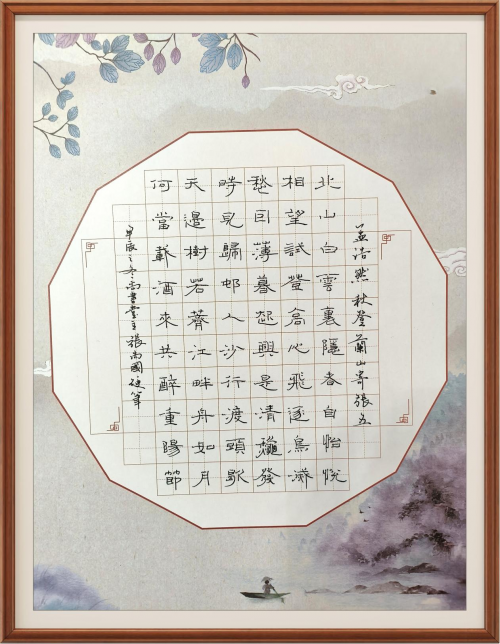 孟浩然秋登蘭山寄張五
北山白雲裏隱者自怡悅
相望試登高心飛逐鳥滅
愁囙薄暮起興是清龝發
時見歸邨人沙行渡頭歇
天邊樹若薺江畔舟如月
何當載酒來共醉重陽節
甲辰之冬尚書堂主張尚國硬筆